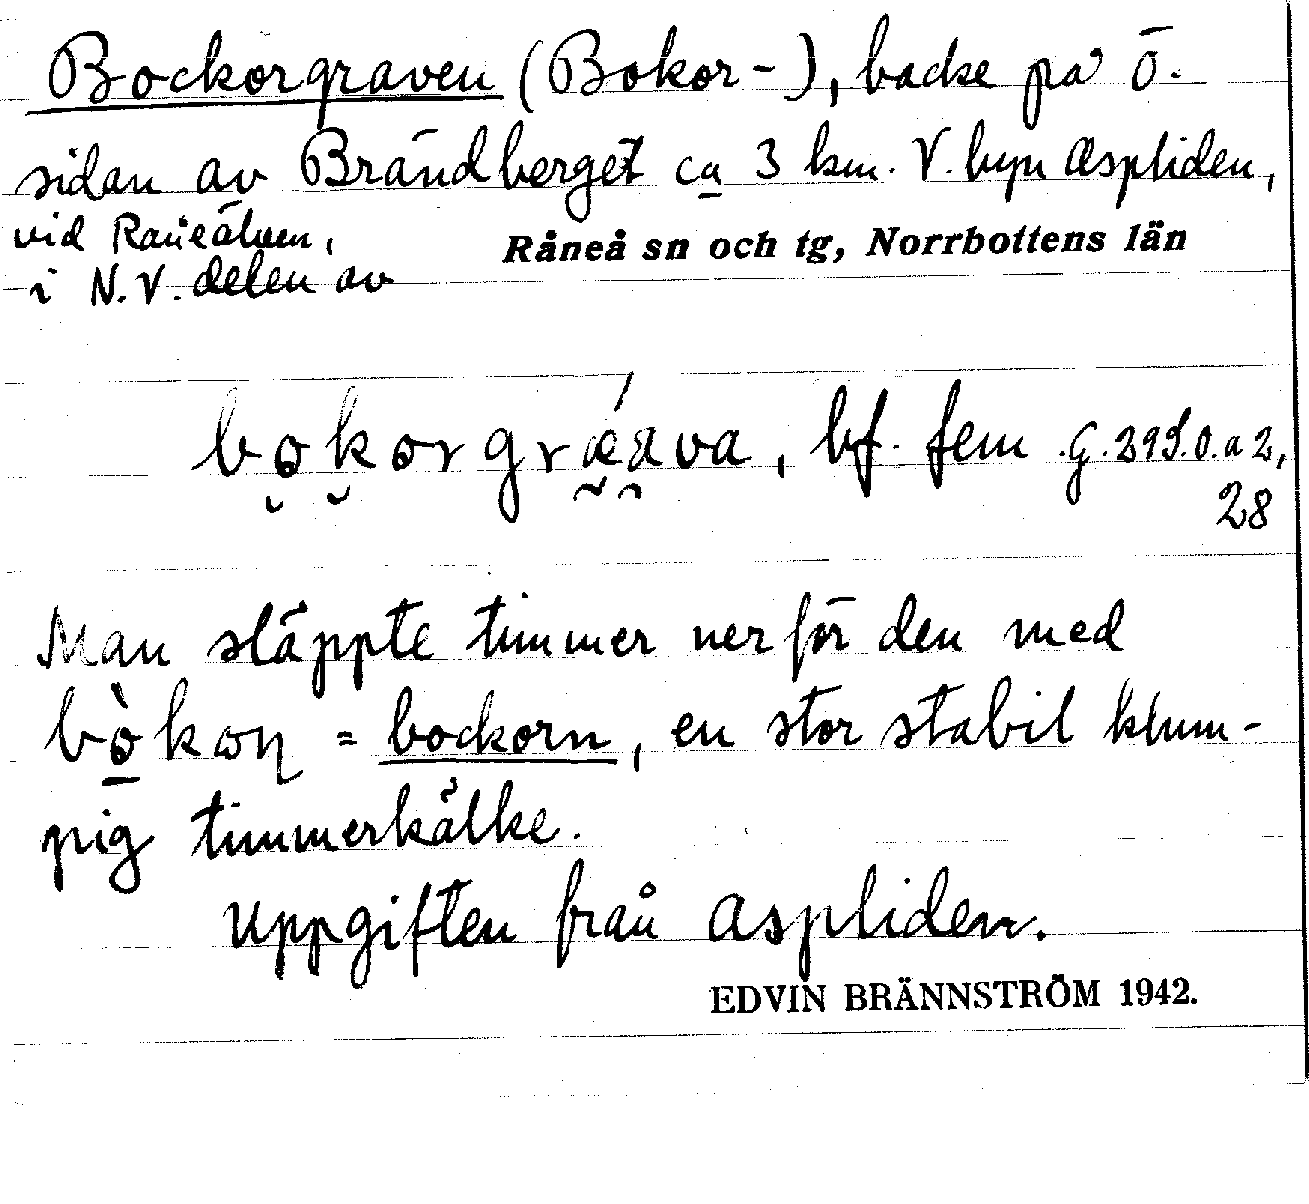 Bockorgraven (Bokor-), backe på Ö.
sidan av Brändberget ca 3 km. V. byn Aspliden,
vid Råneälven,
i N.V. delen av
Råneå sn och tg, Norrbottens län
bokorgræava, bf. fem G.
28
Man släppte timmer ner för den med
bòkoɳ = bockorn, en stor stabil klum-
pig timmerkälke.
Uppgiften från Aspliden.
EDVIN BRÄNNSTRÖM 1942.